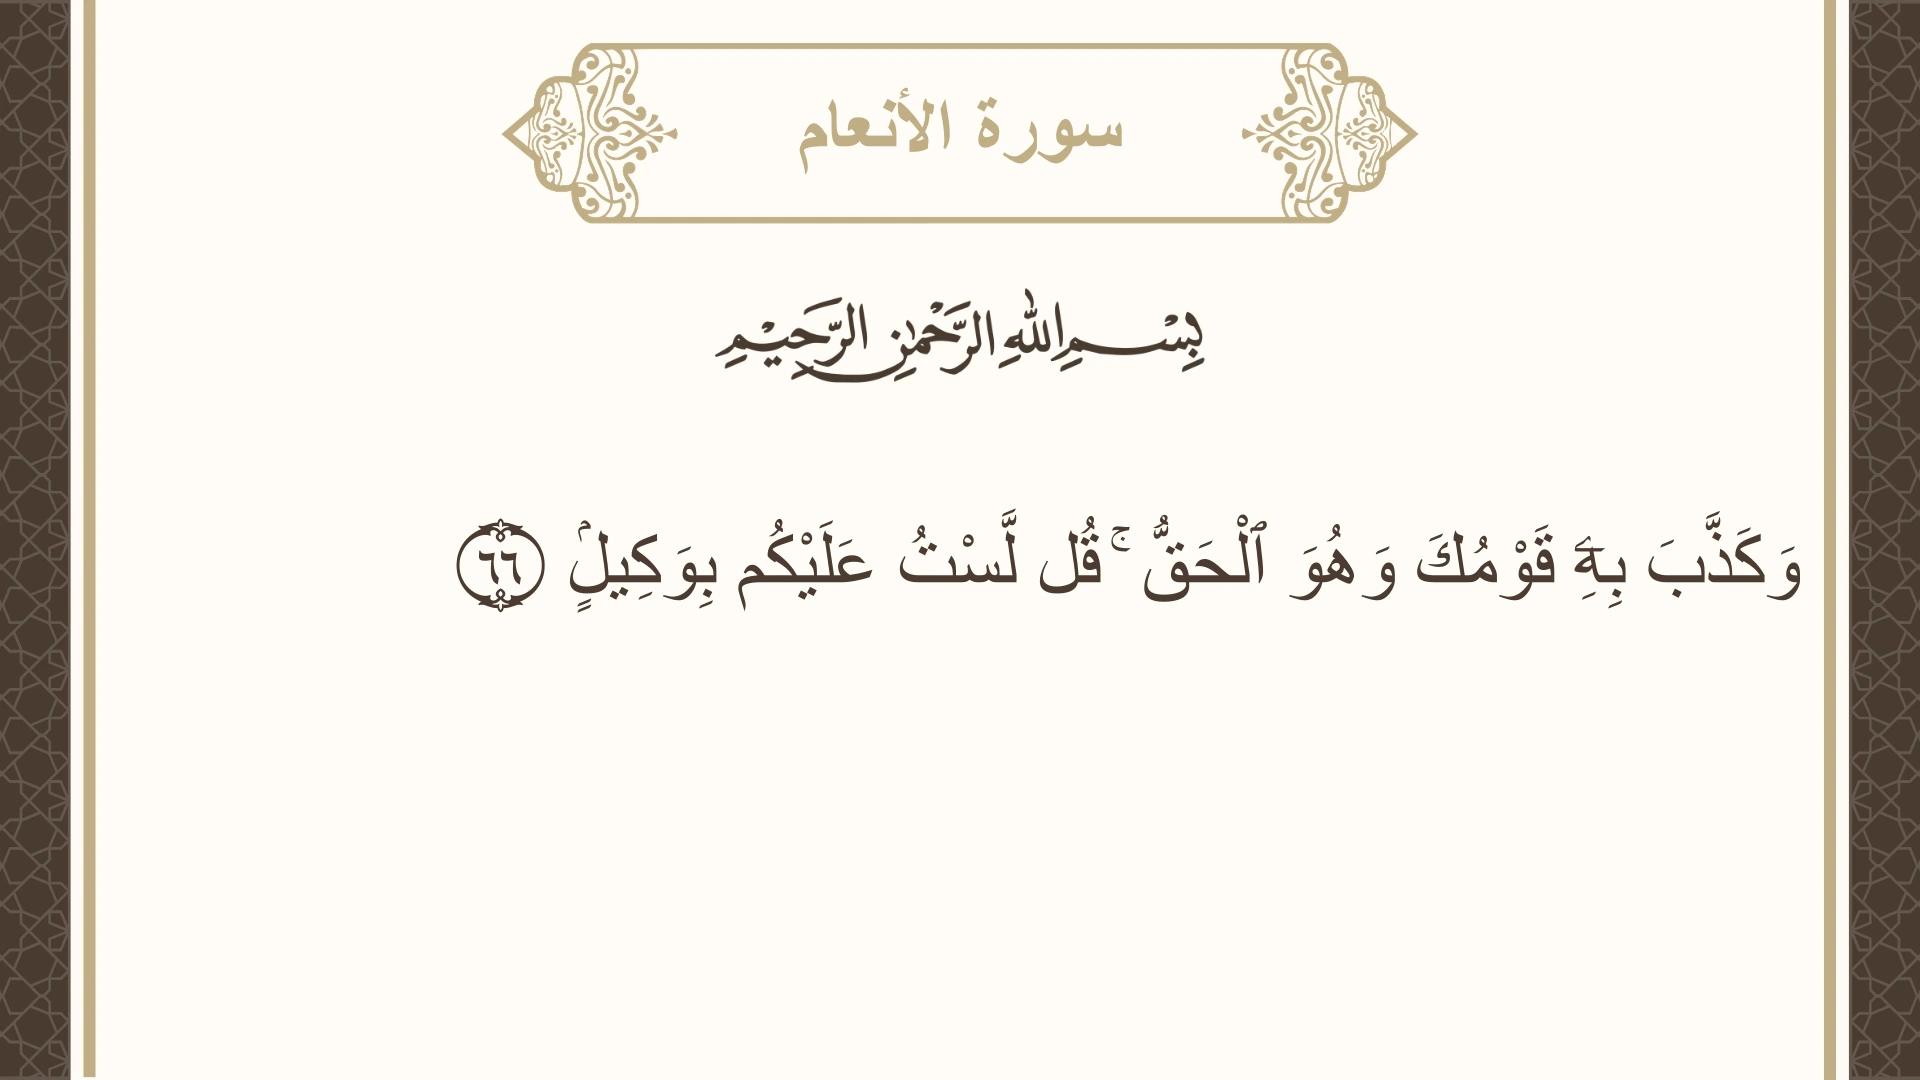 سورة الأنعام
بِسْمِ اللهِ الرَّحْمٰنِ الرَّحِيْمِ
وَكَذَّبَ بِهِۦ قَوْمُكَ وَهُوَ ٱلْحَقُّ ۚ قُل لَّسْتُ عَلَيْكُم بِوَكِيلٍۢ ٦٦